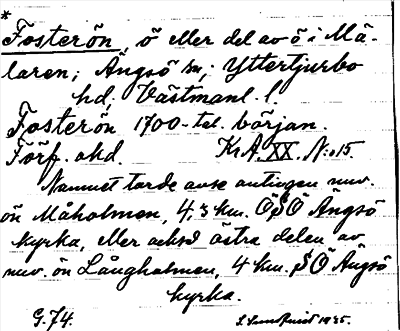 *
Fosterön, ö eller del av ö i Mä-
laren; Ängsö sn; Yttertjurbo
hd, Västmanl. l.
Fosterön 1700-tal. början.
Förf. okd. KrA. XX. N:o 15.
Namnet torde avse antingen nuv.
ön Måholmen, 4,3 km. OSO Ängsö
kyrka, eller också östra delen av
nuv. ön Långholmen, 4 km. SO Ängsö
kyrka.
G. 74.
1935.